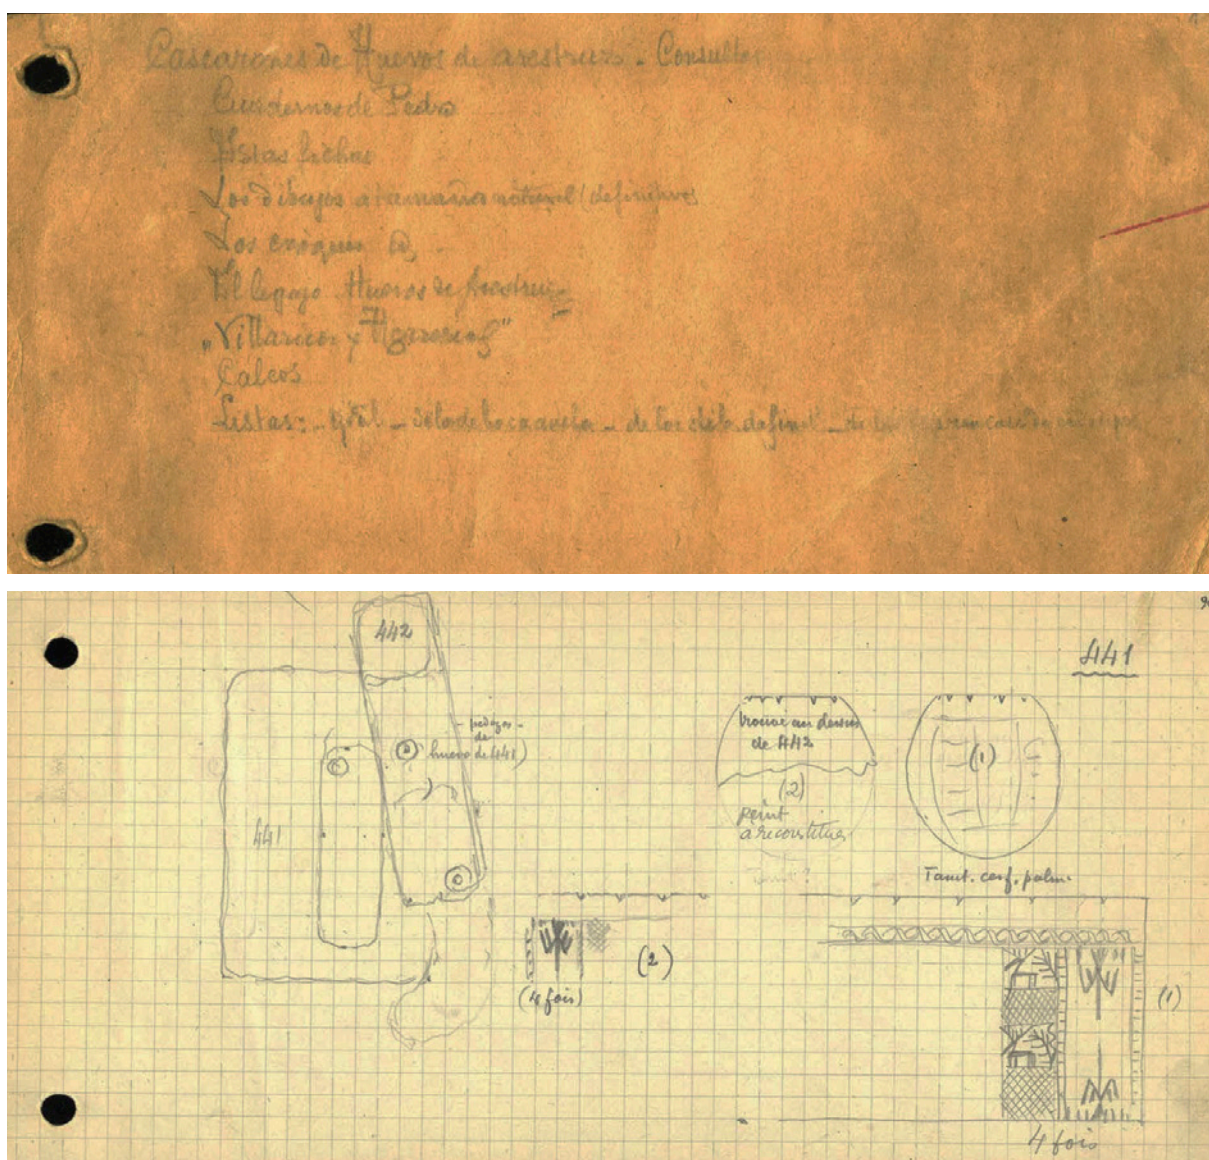 Cascarones de Huevos de avestruz - Consultar
Cuadernos de Pedro
Estas fichas
Los dibujos a tamaño natural (definitivos)
Los croquis id.
El legajo Huevos de Avestruz
"Villaricos y Herrerias"
Calcos
Listas: - gral - de los dib. definit
442
441
- pedazos -
de
huevo de 441)
441
trouvé au dessus
de 442
(2)
peint
a reconstituer
(1)
Tamt. cerf. palm.
(2)
(4 fois)
(1)
4 fois